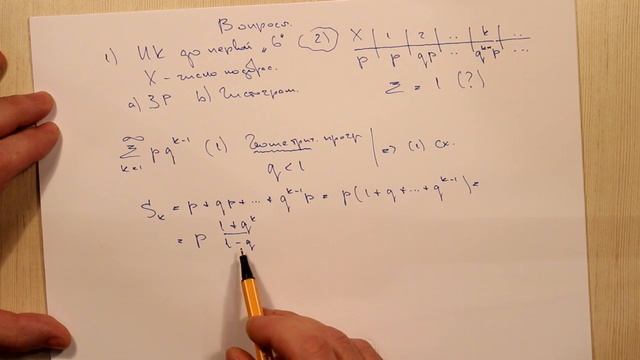 Вопросы.
1) ИК до первой „6“
X - число подбрас.
а) ЗР b) Гистограм.
(2) X | 1 | 2 | .. | k | ...
p | p | qp | ... | qᵏ⁻¹p | ...
Σ = 1 (?)
∞ Σ k=1 pqᵏ⁻¹ (1) Геометрич. прогр. q < 1 | => (1) сх.
Sₖ = p + qp + ... + qᵏ⁻¹p = p(1 + q + ... + qᵏ⁻¹) =
= p (1+qᵏ)/(1-q)